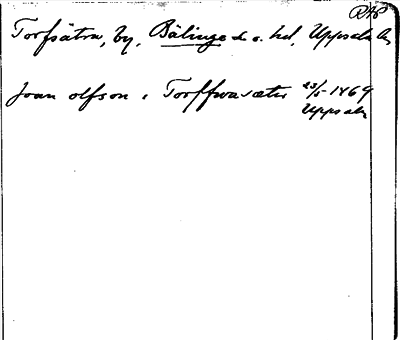 Torfsätra, by, Bälinge s. o. hd, Uppsala län
Joan olfson i Torffwasæter 23/5 1469
Uppsala